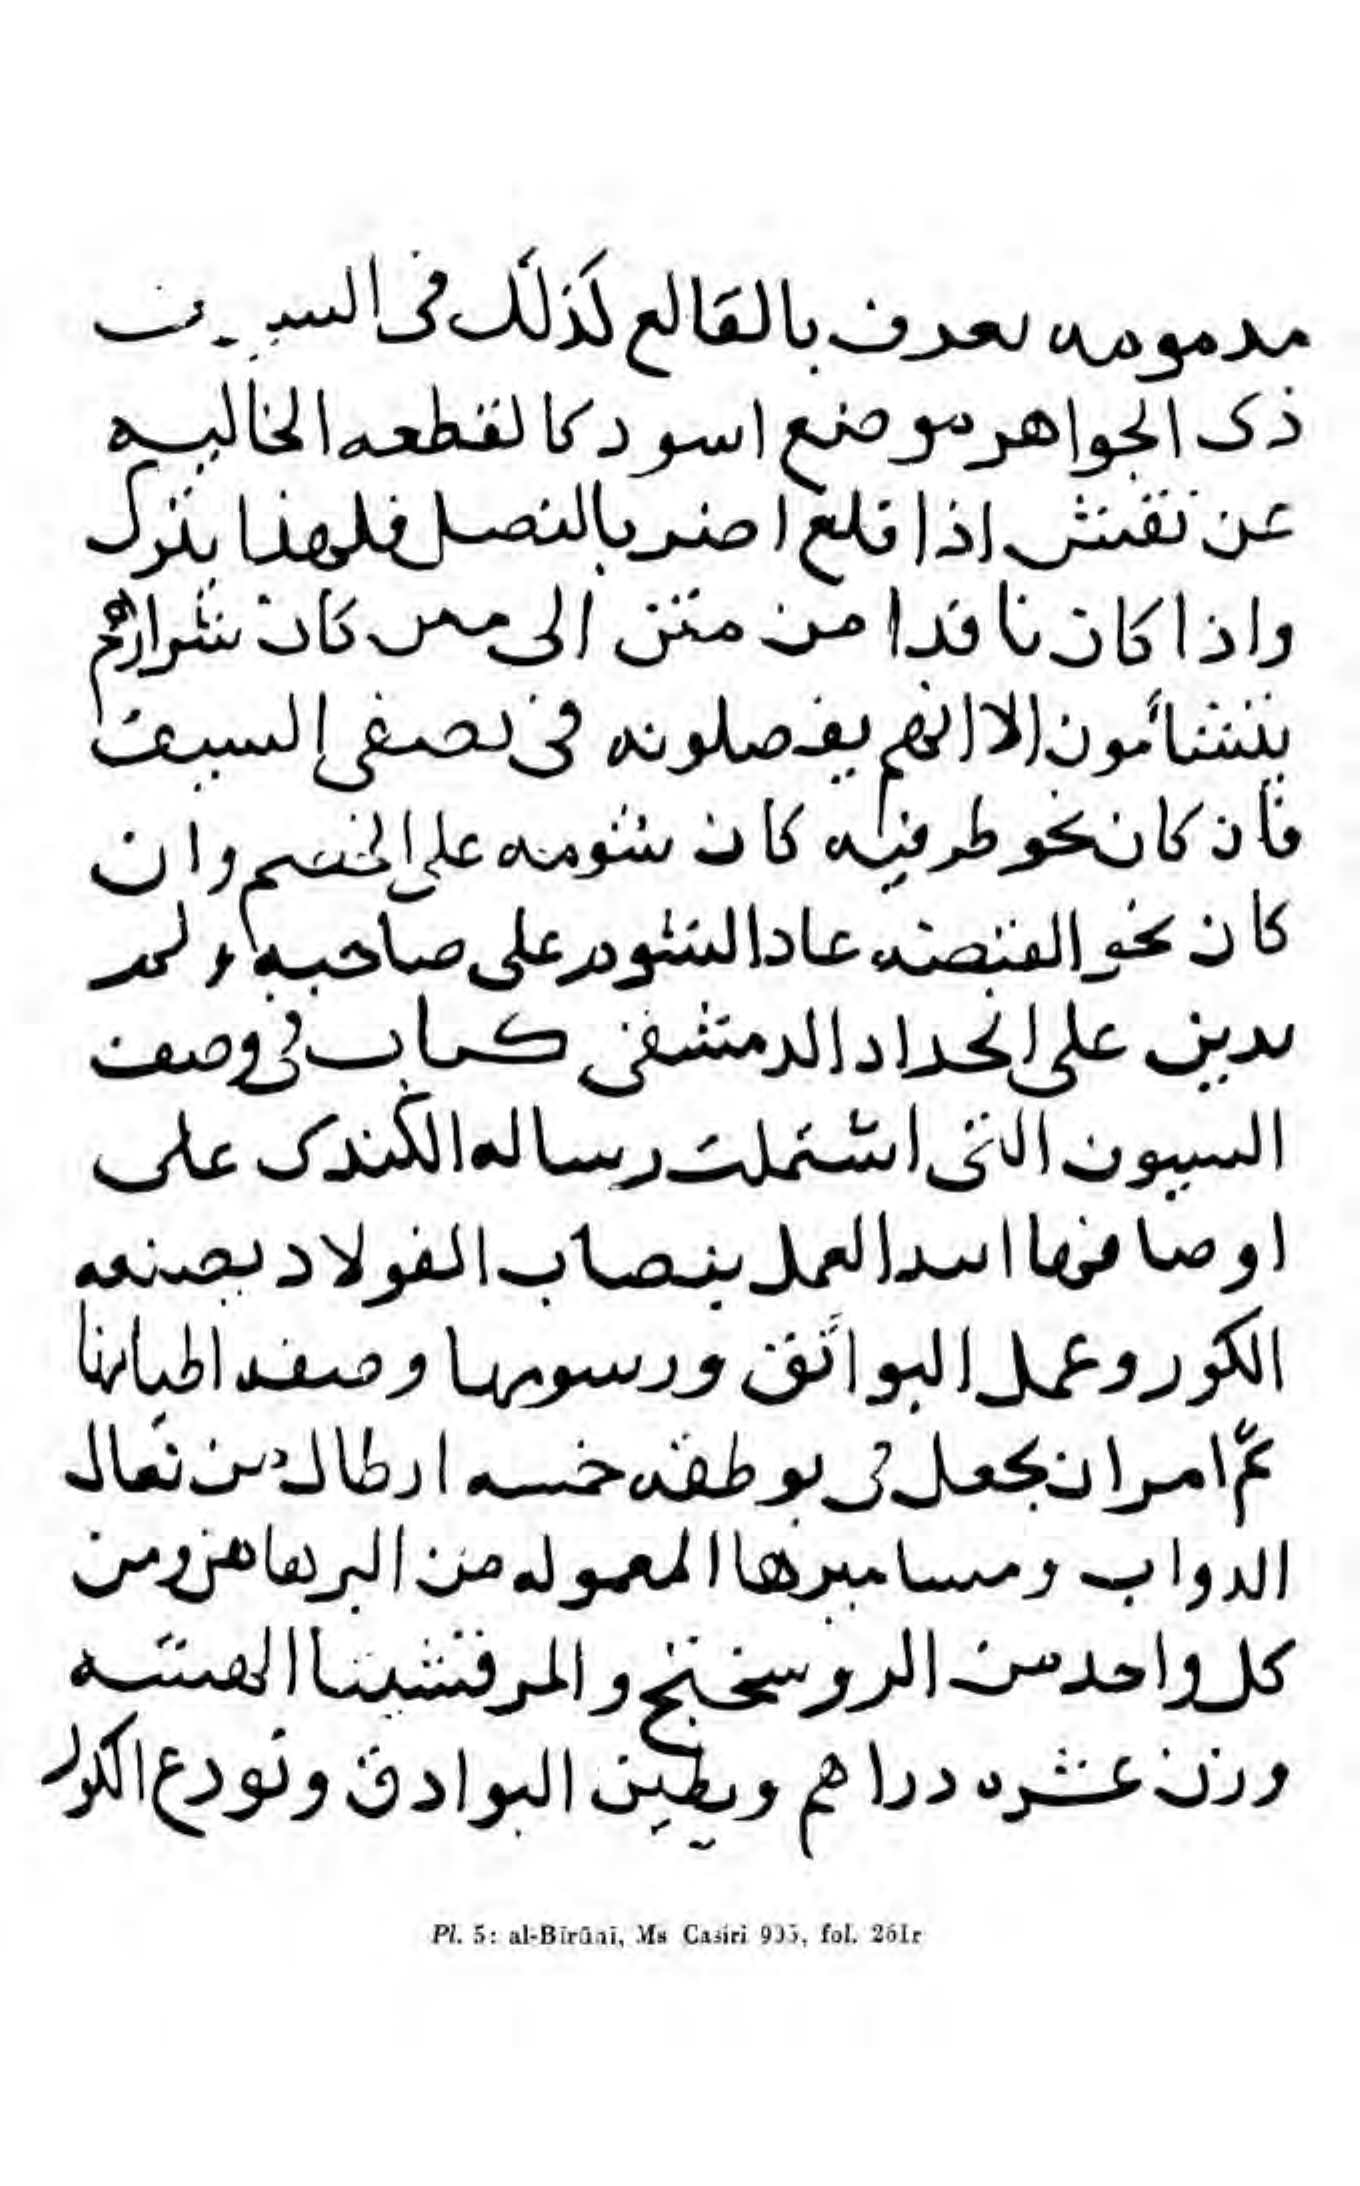 مدمومه يعرف بالقالع كذلك فى السيف
ذى الجواهر موضع اسود كالقطعه الخاليه
عن نقش اذا قلع اضر بالنصل فلهذا يترك
واذا كان نافدا من متن الى متن كان
يتشأمون الا انهم يفصلونه فى نصفى السيف
فأن كان نحو طرفيه كان شومه على الخصم وان
كان نحو القبضه عاد الشوم على صاحبه ولمر
يدبن على الحداد الدمشقى كتاب فى وصف
السيوف التى اشتملت رساله الكندى على
اوصافها ابتدا العمل بنصاب الفولاد بصنعه
الكور وعمل البواتق ورسومها وصفه اطيانها
ثمّ امر ان يجعل فى بوطقه خمسه ارطال من نعال
الدواب ومساميرها المعموله من النرماهن ومن
كل واحد من الروسختج والمرقشيشا الهشه
وزن عشره دراهم ويطين البوادق وتودع الكور
Pl. 5: al-Bīrūnī, Ms Casiri 905, fol. 261r